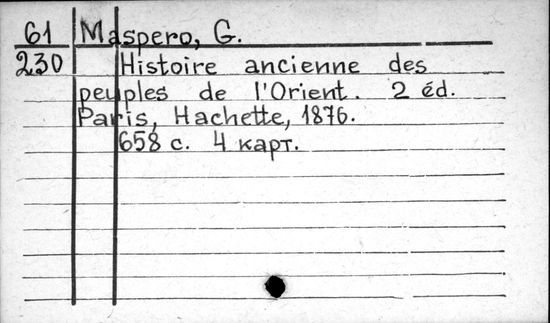 61 Maspero, G.
230 Histoire ancienne des
peuples de l'Orient. 2 éd.
Paris, Hachette, 1876.
658 с. 4 карт.